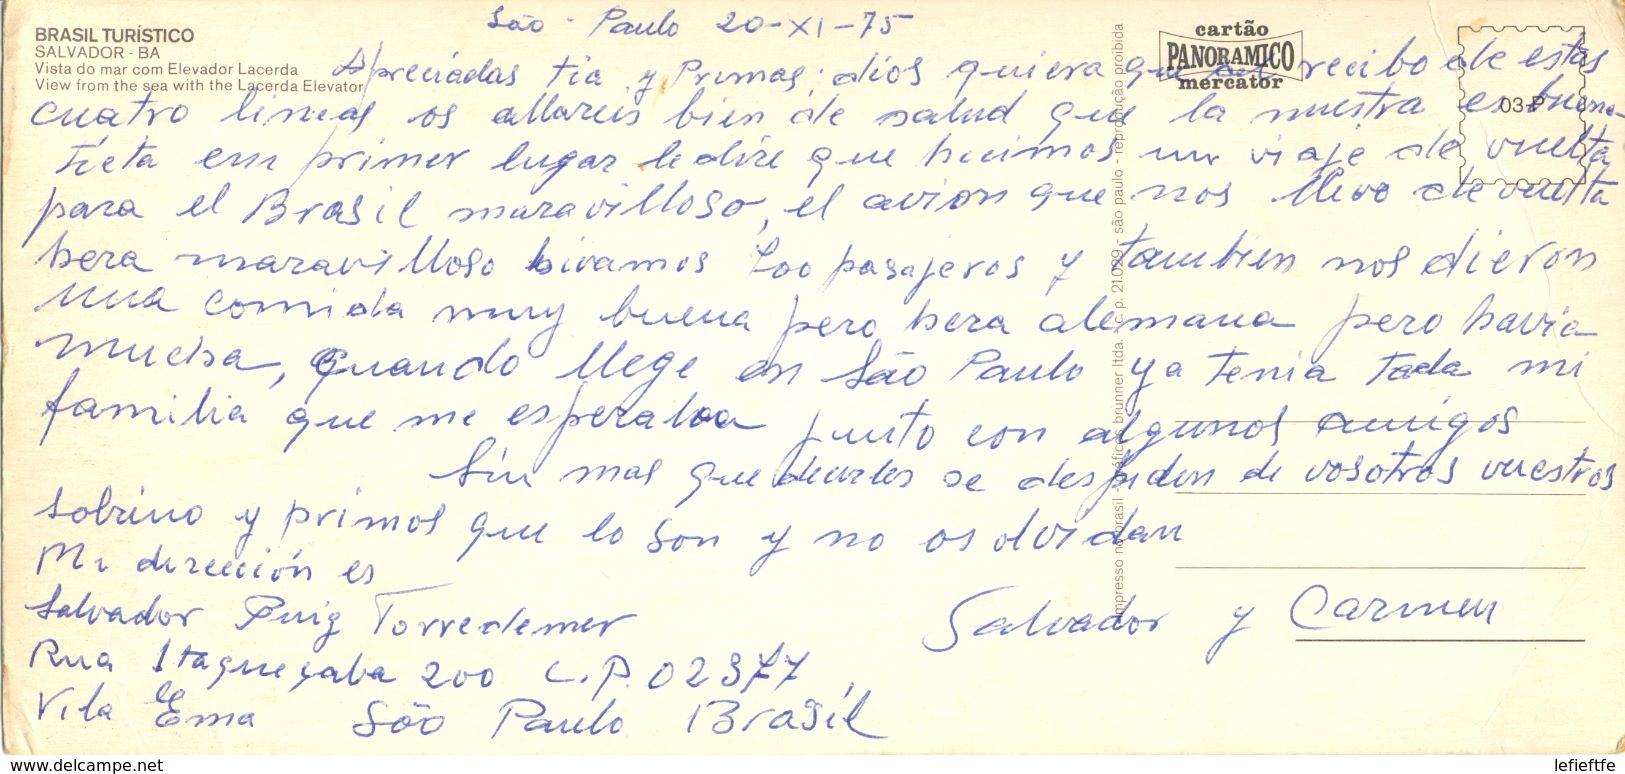 BRASIL TURÍSTICO
SALVADOR - BA
Vista do mar com Elevador Lacerda
View from the sea with the Lacerda Elevator
cartão
PANORAMICO
mercator
03-P
São - Paulo 20-XI-75
Apreciadas tia y Primas: dios quiera que al recibo de estas
cuatro lineas os allareis bien de salud que la nuestra es buena
tieta em primer lugar le dire que hicimos un viaje de vuelta
para el Brasil maravilloso, el avion que nos llevo de vuelta
hera maravilloso hivamos 400 pasajeros y tambien nos dieron
una comida muy buena pero hera alemana pero havia
mucha, Quando llege en São Paulo ya tenia toda mi
familia que me esperaba junto con algunos amigos
Sin mas que decirles se despiden de vosotros vuestros
sobrino y primos que lo son y no os olvidan
Mi dirección es
Salvador Puig Torredemer
Salvador y Carmen
Rua Itaqueçaba 200 C.P. 02377
Vila Ema São Paulo Brasil
impresso no brasil - gráficos brunner ltda. c.c. p. 21029 - são paulo - reprodução proibida
lefieftfe
www.delcampe.net